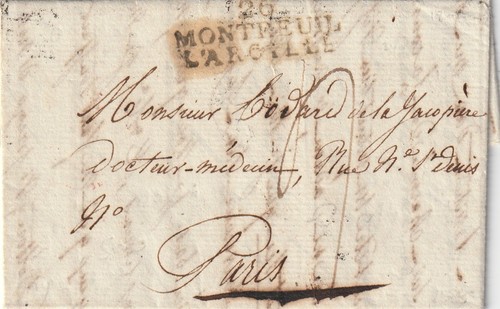 26
MONTREUIL-
L'ARGILLÉ
Monsieur Codard de la Jacopiere
Docteur-médecin, Rue Ne. St denis
No
Paris